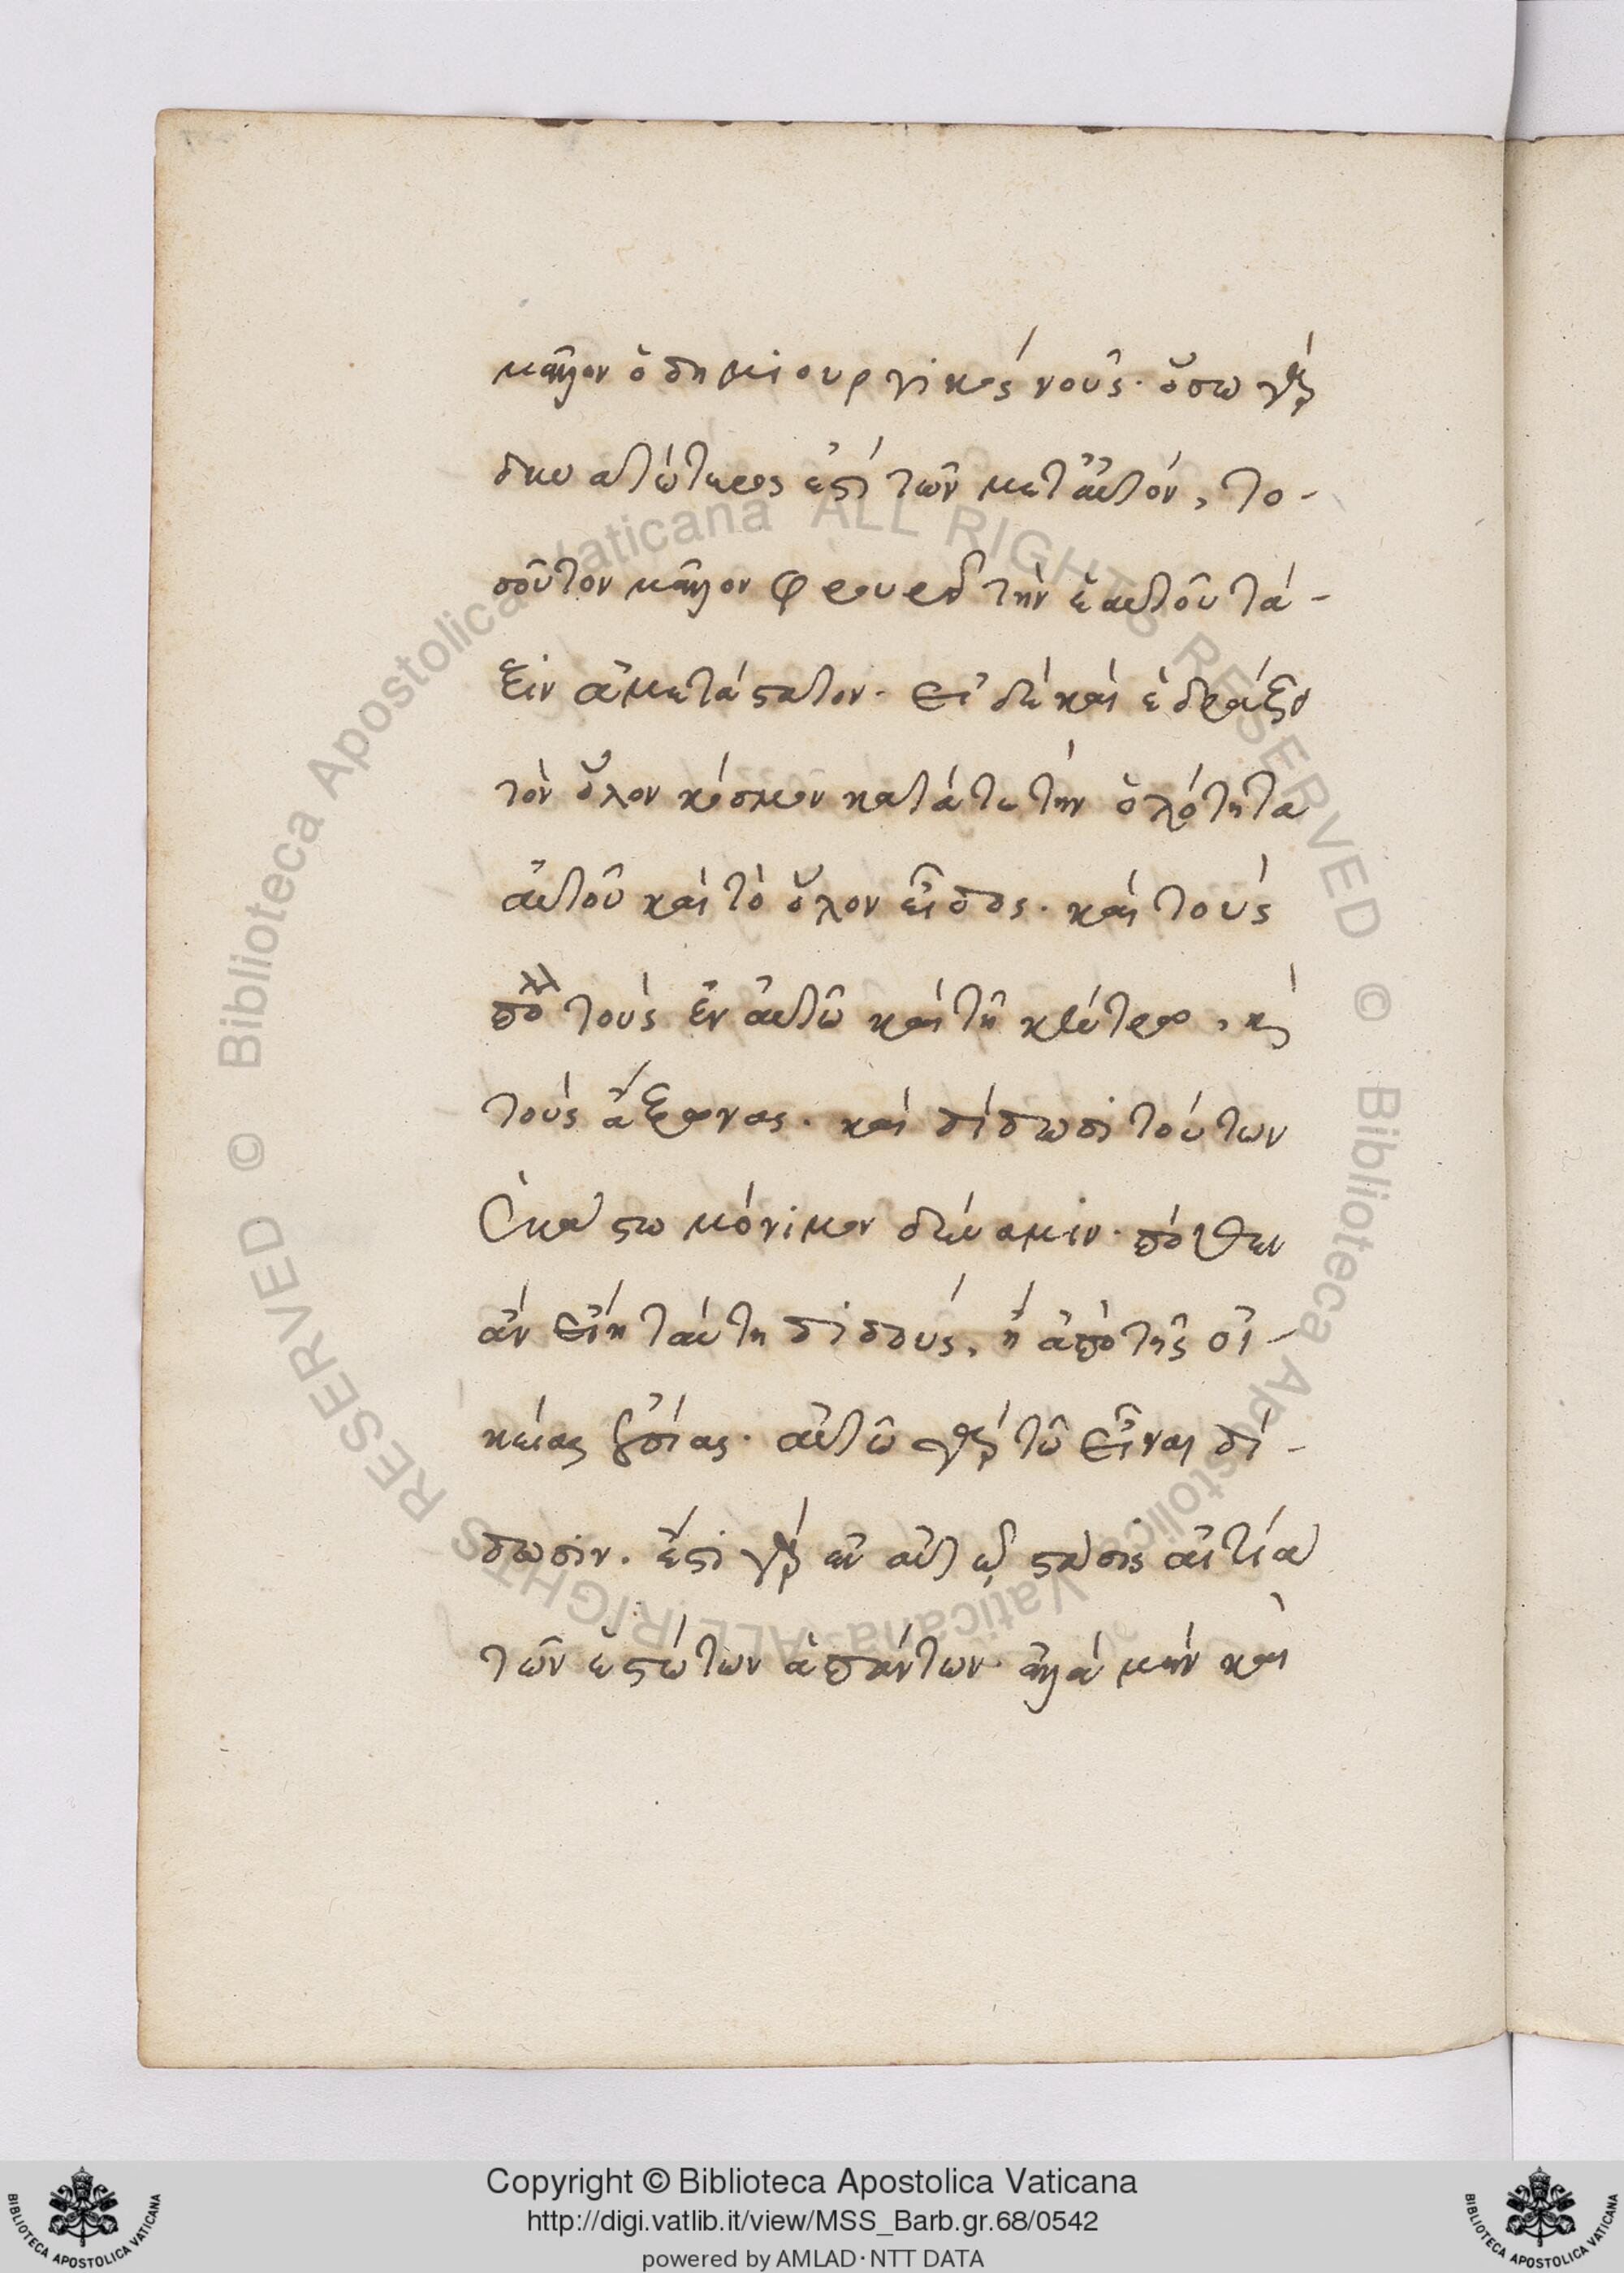 μᾶλλον ὁ δημιουργικός νοῦς. ὅσω γάρ
δυνατώτερος ἐστί τῶν μετ' αὐτόν, το-
σοῦτον μᾶλλον φρουρεῖ τὴν ἑαυτοῦ τά-
ξιν ἀμετάστατον. εἰ δὲ καὶ ἑδράζει
τὸν ὅλον κόσμον κατά τε τὴν ὁλότητα
αὐτοῦ καὶ τὸ ὅλον εἶδος. καὶ τοὺς
πόλλους ἐν αὐτῶ καὶ τῆ κέντρα, καὶ
τοὺς ἄξονας. καὶ δίδωσι τούτων
ἑκάστω μόνιμον δύναμιν. πόθεν
ἂν εἴη ταύτη διδούς, ἢ ἀπὸ τῆς οἰ-
κείας οὐσίας. αὐτῶ γάρ τῶ εἶναι δί-
δωσιν. ἔστι γάρ ἐν αὐτῶ στάσις αἰτία
τῶν ἑστώτων ἁπάντων. ἀλλὰ μὴν καὶ
Copyright © Biblioteca Apostolica Vaticana
http://digi.vatlib.it/view/MSS_Barb.gr.68/0542
powered by AMLAD·NTT DATA
BIBLIOTECA APOSTOLICA VATICANA
BIBLIOTECA APOSTOLICA VATICANA
© Biblioteca Apostolica Vaticana ALL RIGHTS RESERVED
© Biblioteca Apostolica Vaticana ALL RIGHTS RESERVED